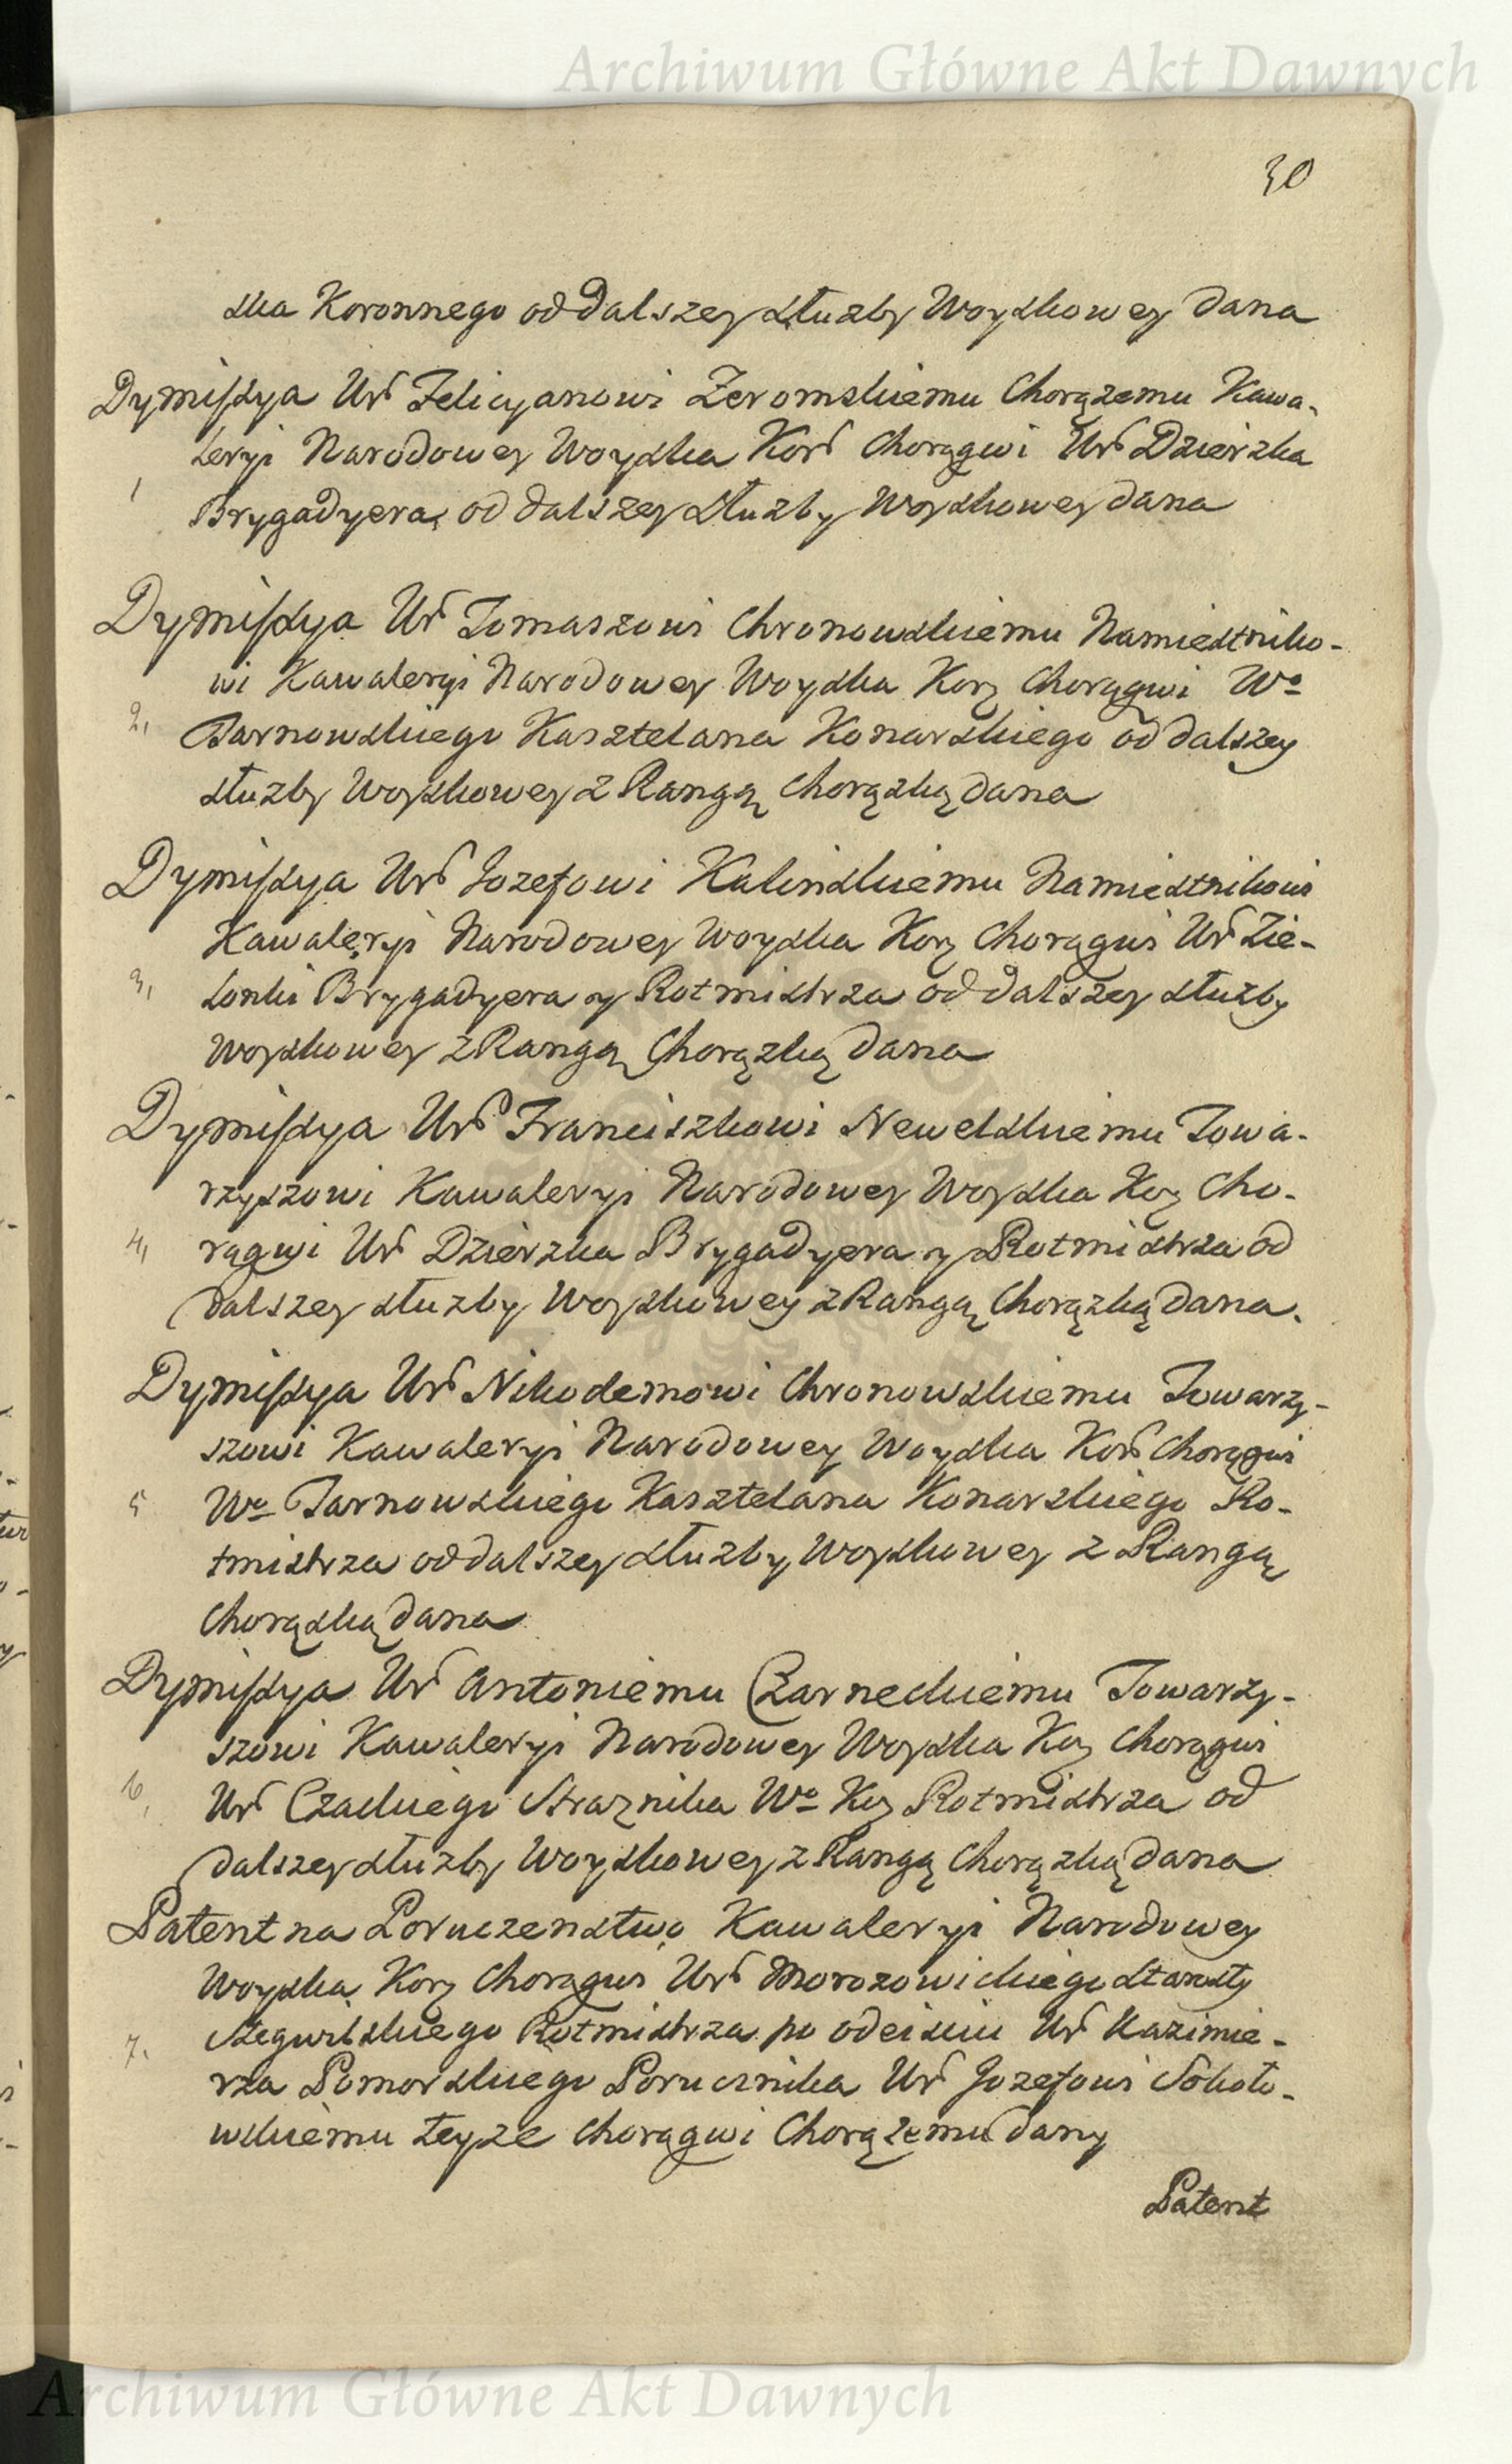 Archiwum Główne Akt Dawnych
30
ska Koronnego od dalszey służby Woyskowey dana
Dymissya Ur Felicyanowi Zeromskiemu Chorązemu Kawa-
leryi Narodowey Woyska Kor Chorągwi Ur Dzierzka
1 Brygadyera, od dalszey służby Woyskowey dana
Dymissya Ur Tomaszowi Chronowskiemu Namiestniko-
wi Kawaleryi Narodowey Woyska Korz Chorągwi Wo
2, Tarnowskiego Kasztelana Konarskiego od dalszey
służby Woyskowey z Rangą Chorąską dana
Dymissya Ur Jozefowi Kalinskiemu Namiestnikowi
Kawaleryi Narodowey Woyska Korz Chorągwi Ur Zie-
3, lonki Brygadyera y Rotmistrza od dalszey służby
Woyskowey z Rangą Chorązką dana
Dymissya Ur Franciszkowi Newelskiemu Towa-
rzyszowi Kawaleryi Narodowey Woyska Korz Cho-
4, rągwi Ur Dzierzka Brygadyera y Rotmistrza od
dalszey służby Woyskowey z Rangą Chorązką dana.
Dymissya Ur Nikodemowi Chronowskiemu Towarzy-
szowi Kawaleryi Narodowey Woyska Kor Chorągwi
5 Wo Tarnowskiego Kasztelana Konarskiego Ro-
tmistrza od dalszey służby Woyskowey z Rangą
Chorąską dana
Dymissya Ur Antoniemu Czarneckiemu Towarzy-
szowi Kawaleryi Narodowey Woyska Korz Chorągwi
6, Ur Czackiego Straznika Wo Korz Rotmistrza od
dalszey służby Woyskowey z Rangą Chorązką dana
Patent na Poruczenstwo Kawaleryi Narodowey
Woyska Korz Chorągwi Ur Morozowickiego Starosty
7. Stegwilskiego Rotmistrza po odeisciu Ur Kazimie-
rza Pomorskiego Porucznika Ur Jozefowi Sokoło-
wskiemu teyze Chorągwi Chorązemu dany
Patent
Archiwum Główne Akt Dawnych